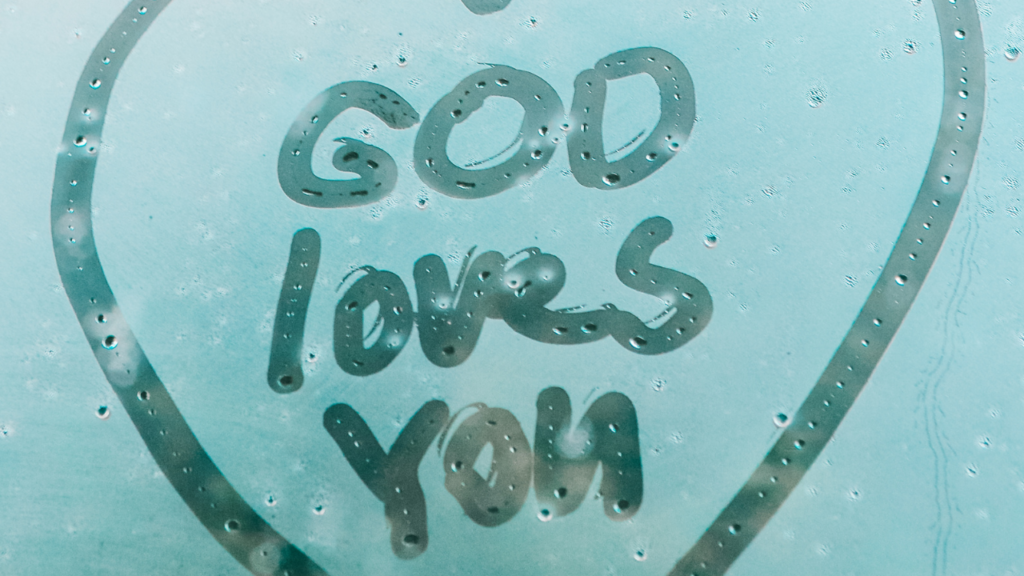 GOD
loves
You